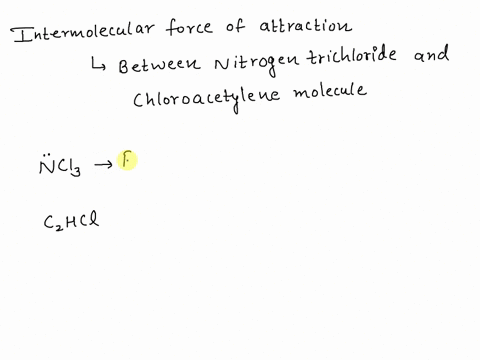 Intermolecular force of attraction
↳ Between Nitrogen trichloride and
Chloroacetylene molecule
N̈Cl₃ →
C₂HCl